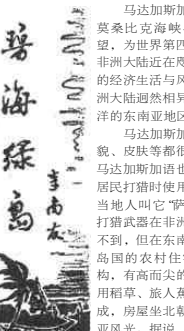 碧海绿岛
李南友
马达加斯加
莫桑比克海峡
望，为世界第四
非洲大陆近在咫
的经济生活与风
洲大陆迥然相异
洋的东南亚地区
马达加斯加
貌、皮肤等都很
马达加斯加语也
居民打猎时使用
当地人叫它“萨
打猎武器在非洲
不到，但在东南
岛国的农村住
构，有高而尖的
用稻草、旅人蕉
成，房屋坐北朝
亚风光。据说，